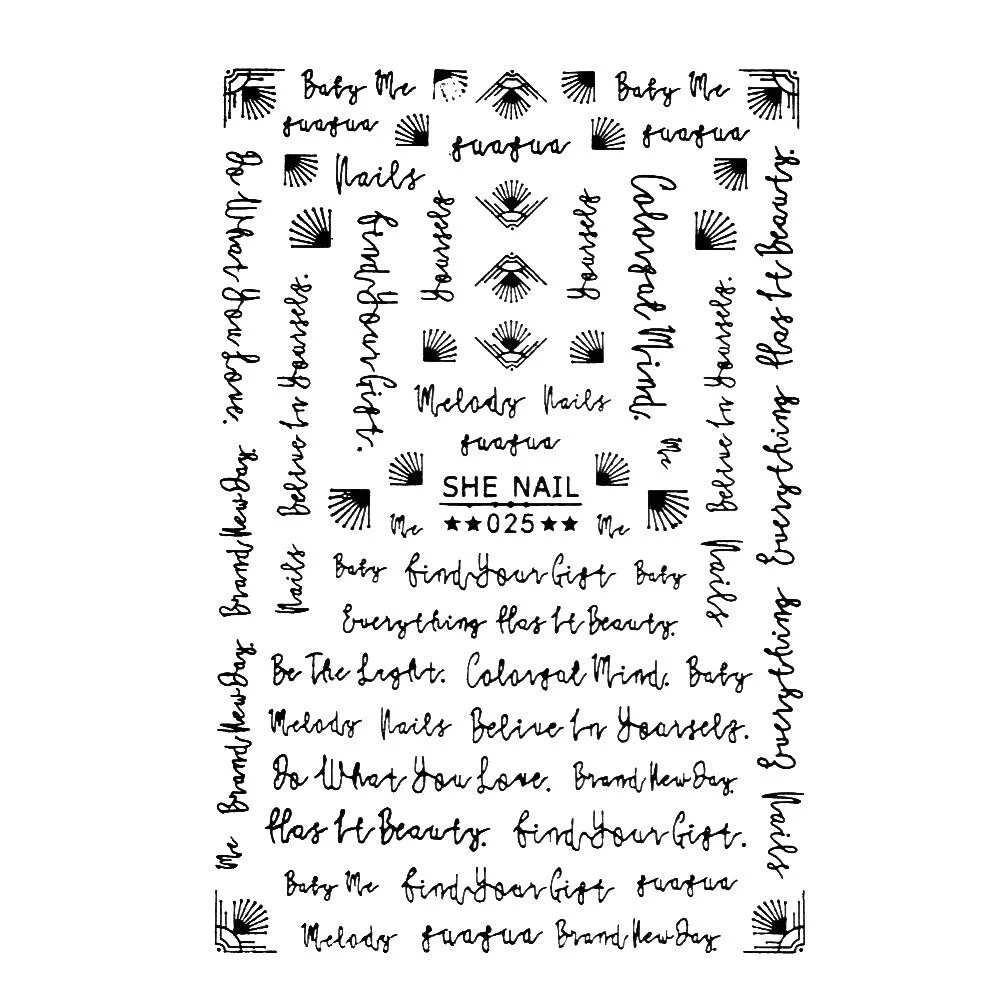 Baby Me
Baby Me
fuafua
fuafua
fuafua
Nails
Do What You Love.
Yourself
Yourself
Find Your Gift.
Colorgal Mind.
Everything Has It Beauty.
Believe In Yourself.
Believe In Yourself.
Melody Nails
fuafua
Me
Brand New Day.
SHE NAIL
★★025★★
Me
Me
Nails
Nails
Baby Find Your Gift Baby
Everything Has It Beauty.
Everything
Be The Light. Colorgal Mind. Baby
Brand New Day.
Melody Nails Belive In Yourself.
Do What You Love. Brand New Day.
Nails
Has It Beauty. Find Your Gift.
Me
Baby Me Find Your Gift fuafua
Melody fuafua Brand New Day.